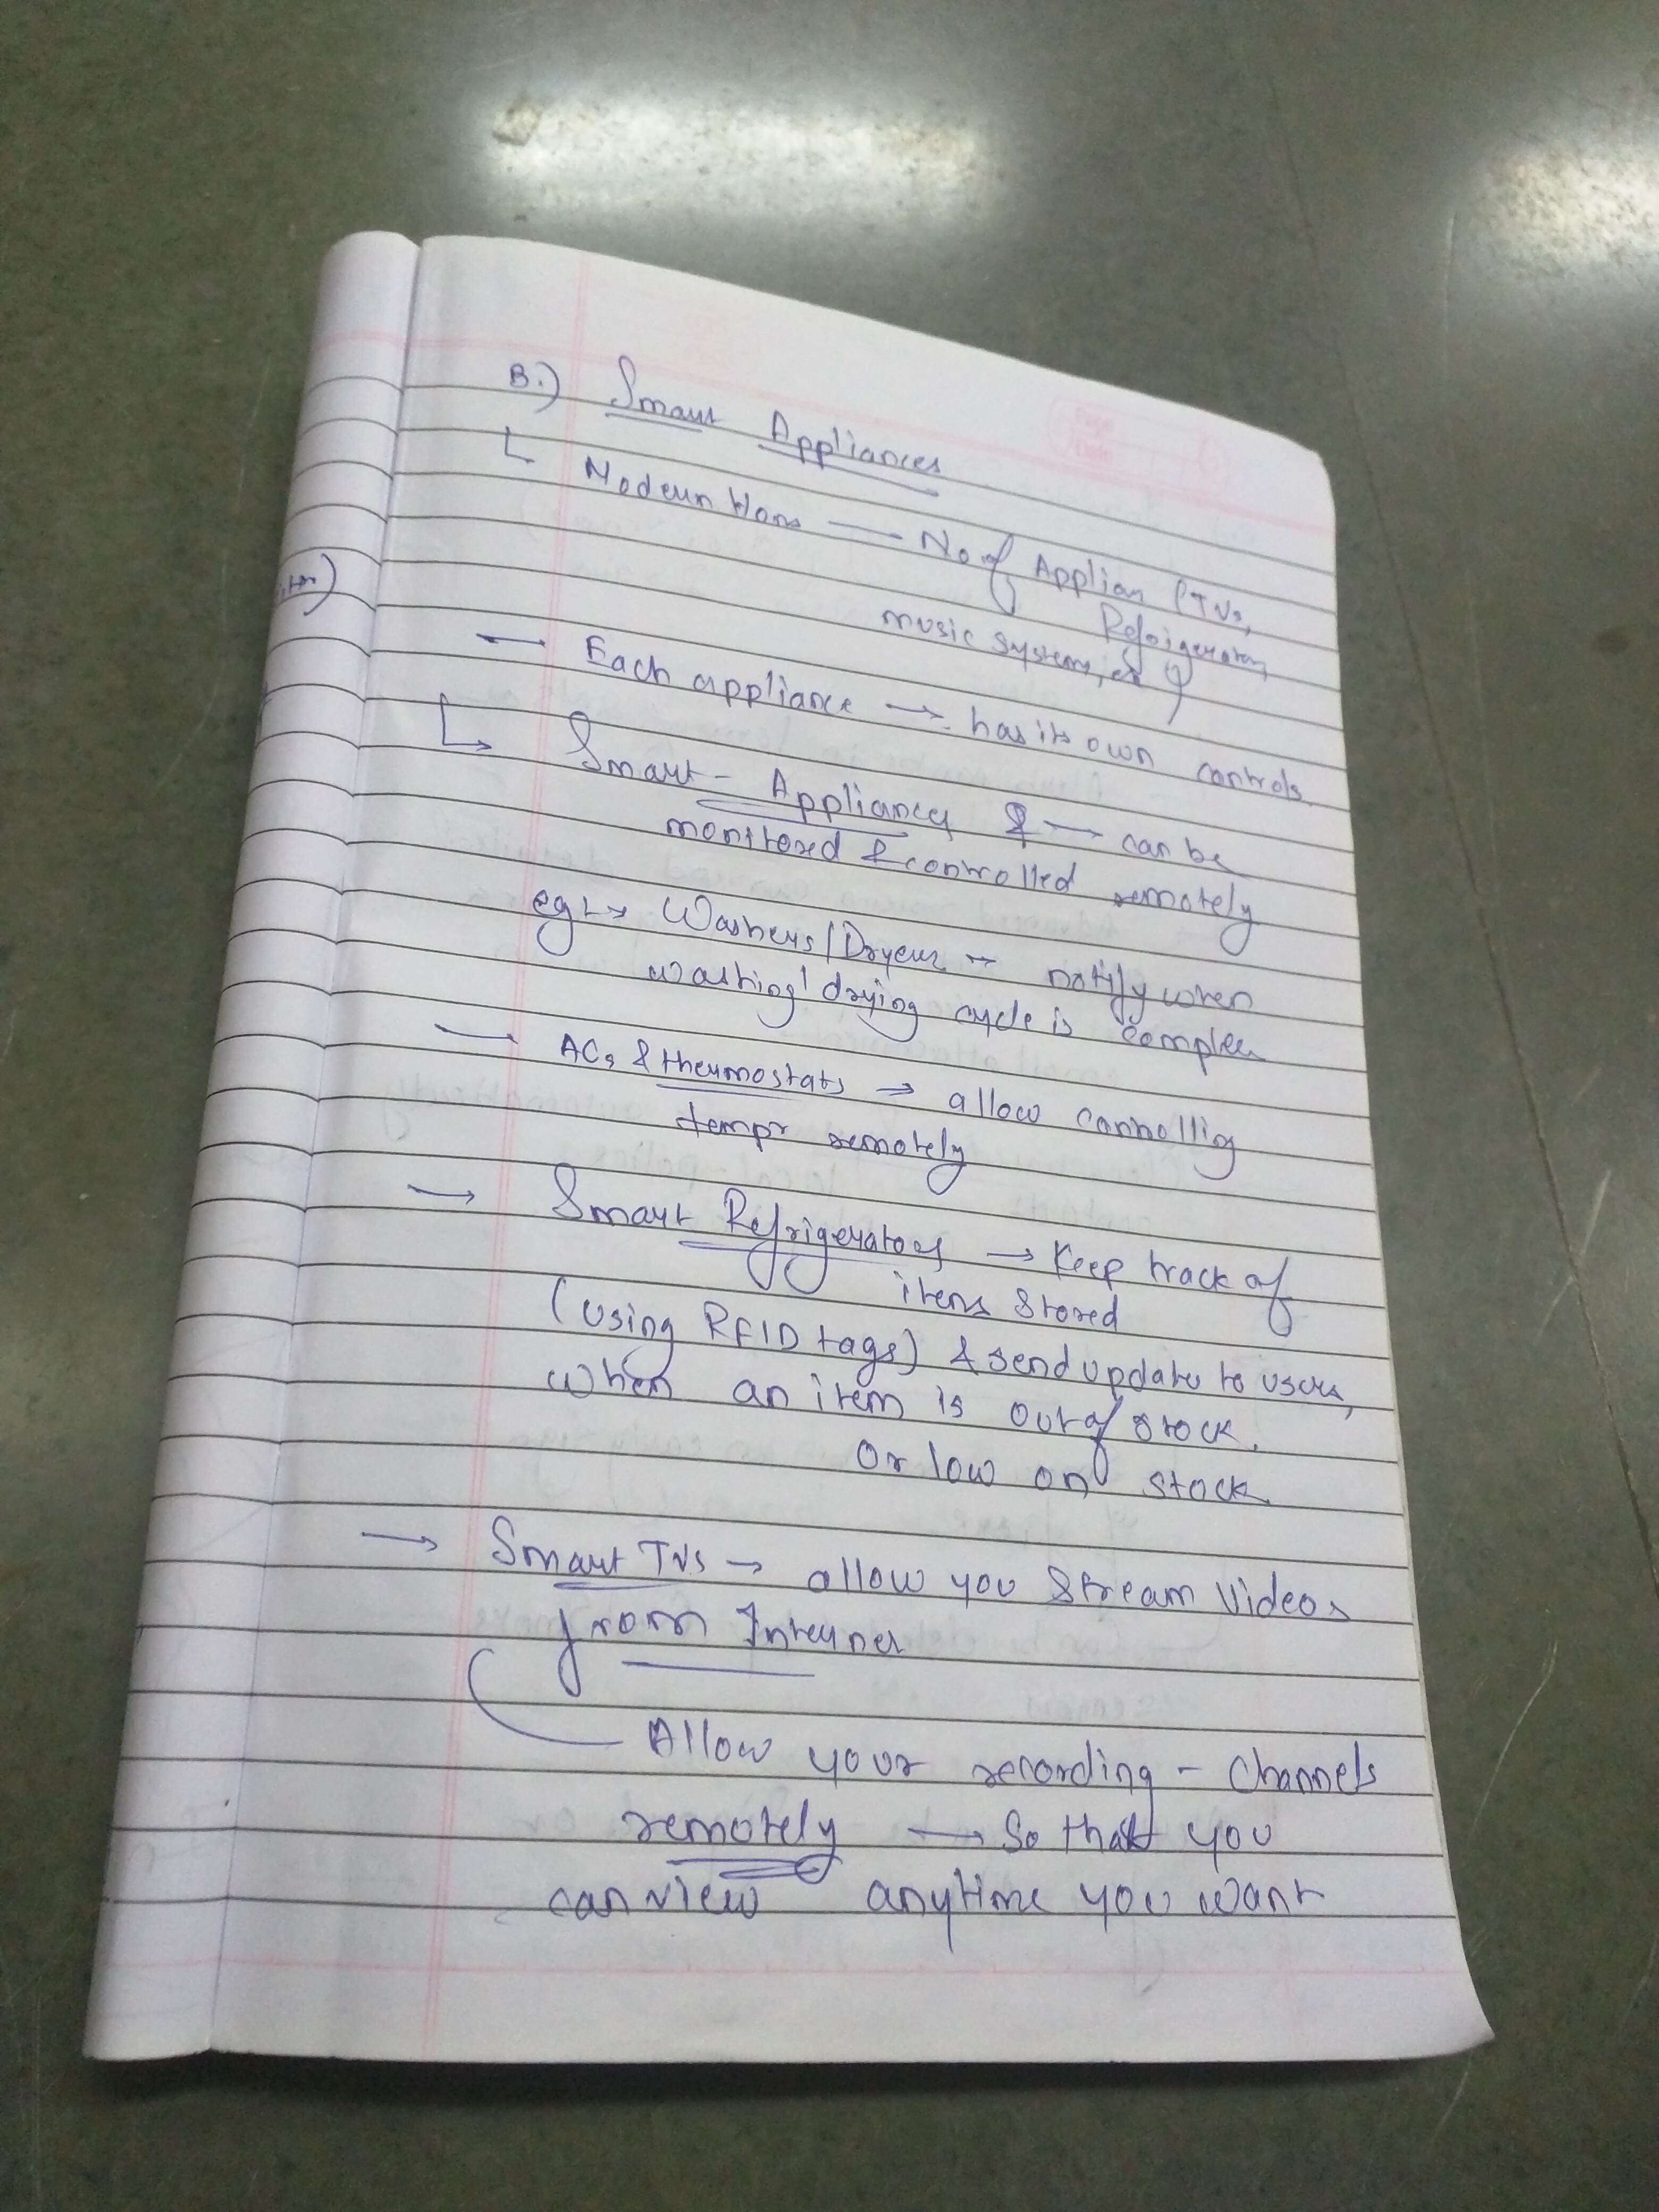 B.) Smart Appliances
Modern Homs — No of Applian (TVs,
Refrigerators,
music systems, etc)
→ Each appliance → has its own controls.
↳ Smart - Appliances → can be
monitored & controlled remotely
eg → Washers/Dryers → notify when
washing/drying cycle is complete
→ ACs & thermostats → allow controllig
tempr remotely
→ Smart Refrigerators → Keep track of
items stored
(using RFID tags) & send update to users,
when an item is out of stock.
Or low on stock
→ Smart TVs → allow you stream videos
from Internet
Allow your recording - Channels
remotely → So that you
can view anytime you want